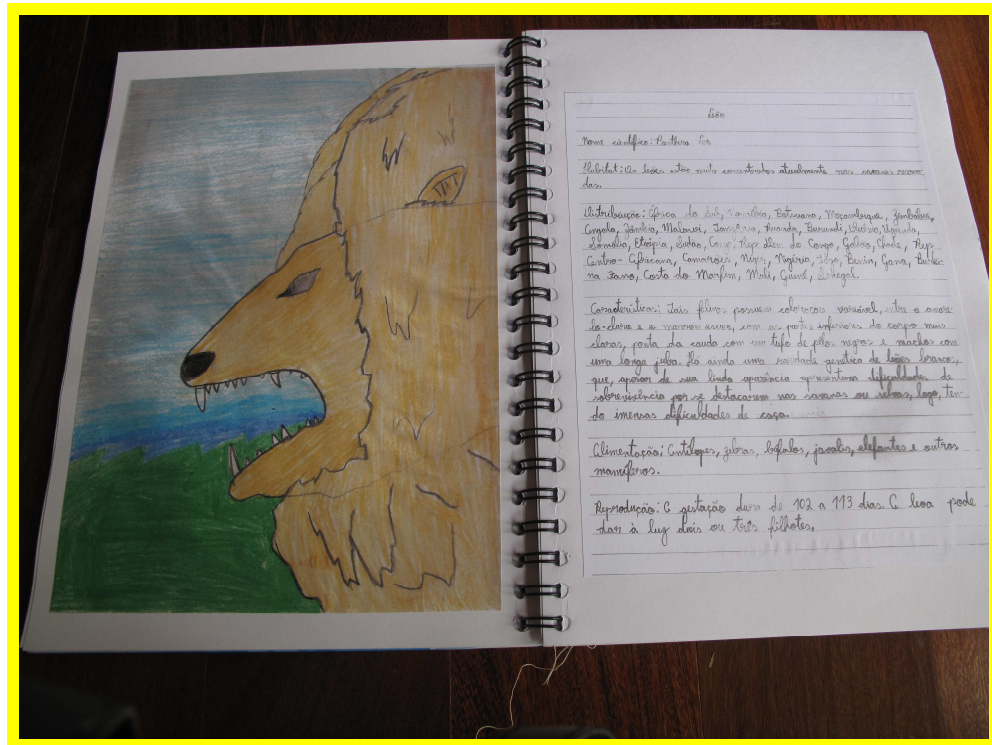 Leão
Nome científico: Panthera leo
Habitat: Os leões estão muito concentrados atualmente nas savanas reserva-
das.
Distribuição: África do Sul, Namíbia, Botsuana, Moçambique, Zimbabue,
Angola, Zâmbia, Malawi, Tanzânia, Ruanda, Burundi, Uganda,
Somália, Etiópia, Sudão, Rep. Dem. do Congo, Gabão, Chade, Rep.
Centro-Africana, Camarões, Níger, Nigéria, Togo, Benin, Gana, Burki-
na Faso, Costa do Marfim, Mali, Guiné, Senegal.
Características: Tais felinos possuem coloração variável, entre o amare-
lo-claro e o marrom escuro, com as partes inferiores do corpo mais
claras, ponta da cauda com um tufo de pelos negros e machos com
uma longa juba. Há ainda uma raridade genética de leões brancos,
que, apesar de sua linda aparência apresentam dificuldades de
sobrevivência por se destacarem nas savanas ou selvas, logo, ten-
do imensas dificuldades de caça.
Alimentação: Antílopes, zebras, búfalos, javalis, elefantes e outros
mamíferos.
Reprodução: A gestação dura de 102 a 113 dias. A leoa pode
dar à luz dois ou três filhotes.